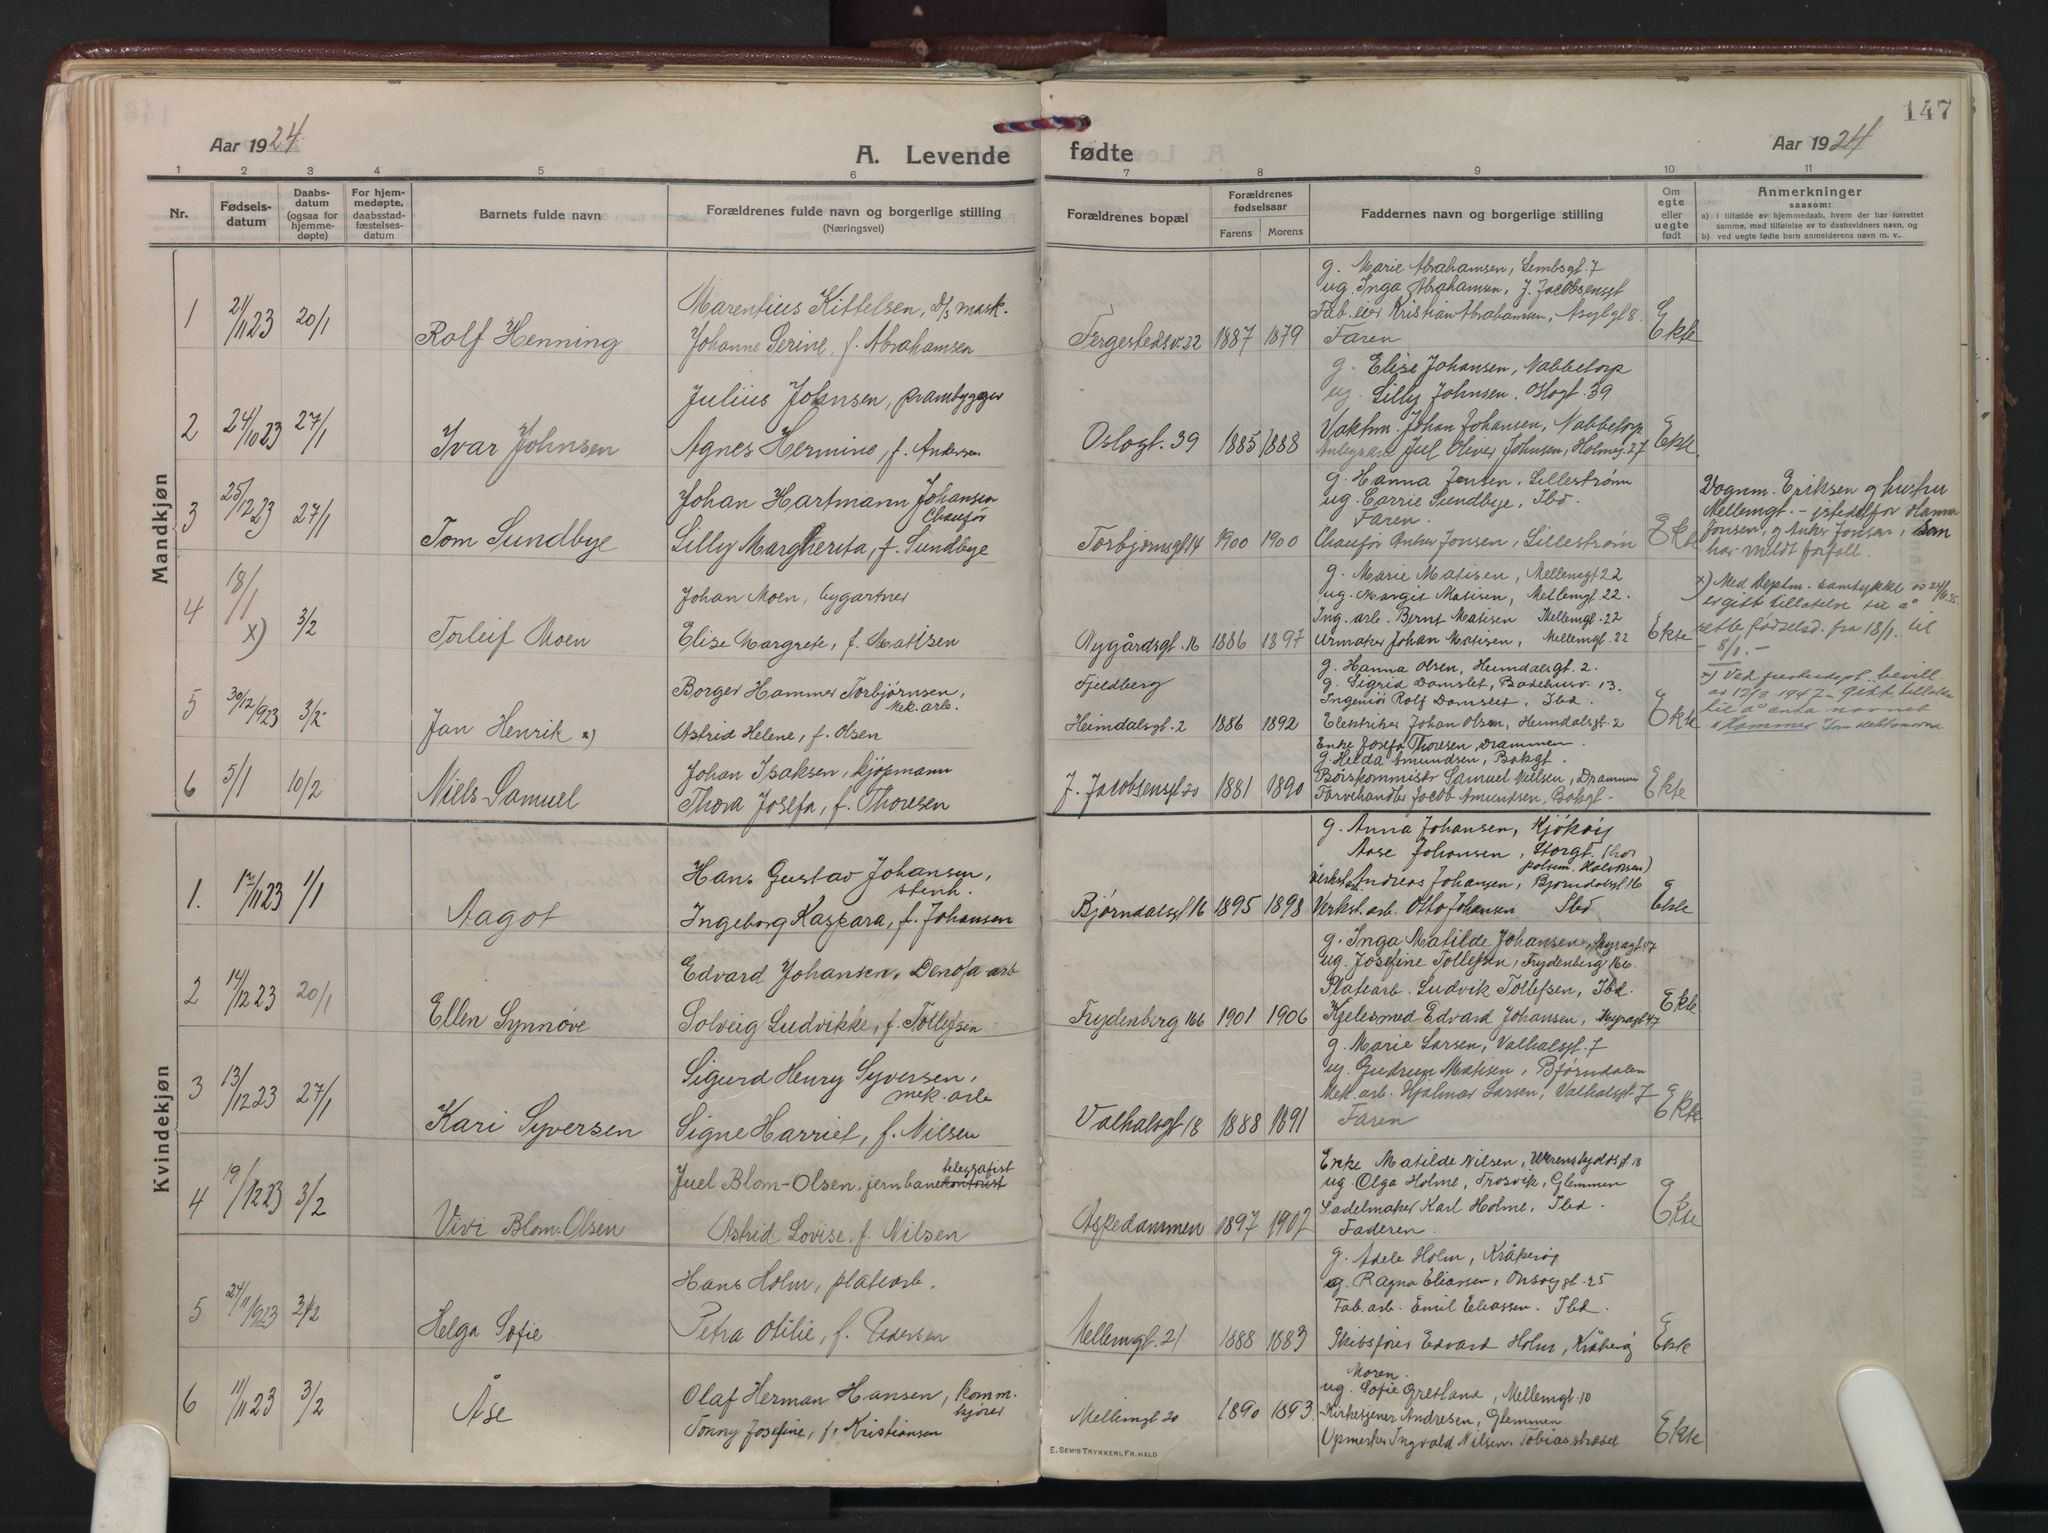 147
Aar 1924
A. Levende fødte
Aar 1924
1 2 3 4 5 6 7 8 9 10 11
Nr.
Fødsels-
datum
Daabs-
datum
(ogsaa for
hjemme-
døpte)
For hjem-
medøpte,
daabsstad-
fæstelses-
datum
Barnets fulde navn
Forældrenes fulde navn og borgerlige stilling
(Næringsvei)
Forældrenes bopæl
Forældrenes
fødselsaar
Farens Morens
Faddernes navn og borgerlige stilling
Om
egte
eller
uegte
født
Anmerkninger
saasom:
a) i tilfælde av hjemmedaab, hvem der har forrettet
samme, med tilføielse av to daabsvidners navn, og
b) ved uegte fødte barn anmelderens navn m. v..
Mandkjøn
1 21/11 23 20/1 Rolf Henning
Marentius Kittelsen, D/s mask.
Johanne Serine, f. Abrahamsen
Fergestedsv. 22 1887 1879
g. Marie Abrahamsen, Lembsgt. 7
ug. Inga Abrahamsen, J. Jacobsensgt
Fab. eier Kristian Abrahamsen, Asylgt 8.
Faren
Ekte
2 24/10 23 27/1 Ivar Johnsen
Julius Johnsen, prambygger
Agnes Hermine, f. Andersen
Oslogt. 39 1885 1888
g. Elise Johansen, Nabbetorp
ug. Lilly Johnsen, Oslogt. 39
Vaktm. Johan Johansen, Nabbetorp
Jul Oliver Johnsen, Holmeg. 27
Ekte
3 25/12 23 27/1 Tom Sundbye
Johan Hartmann Johansen
Chauför
Lilly Margherita, f. Sundbye
Torbjørnsgt 14 1900 1900
g. Hanna Jonsen, Lillestrøm
ug. Carrie Sundbye, Ibd.
Faren.
Chauför Anker Jonsen, Lillestrøm
Ekte
Vognm. Eriksen og hustru
Mellemgt. - istedetfor Hanna
Jonsen, og Anker Jonsen, som
har meldt forfall.
4 18/1 x) 3/2 Torleif Moen
Johan Moen, bygartner
Elise Margrete, f. Matisen
Nygårdsgt. 16 1886 1897
g. Marie Matisen, Mellemgt 22
ug. Margit Matisen, Mellemgt 22.
Ing. arb. Bernt Matisen Mellemgt. 22
Urmaker Johan Matisen, Mellemgt. 22
Ekte
x) Med Deptm. samtykke av
er gitt tillatelse til å
rette fødselsd. fra 18/1. til
- 8/1. -
5 30/12 1923 3/2 Jan Henrik x)
Borger Hammer Torbjørnsen,
Mek. arb.
Astrid Helene, f. Olsen
Fjeldberg
Heimdalsgt. 2 1886 1892
g. Hanna Olsen, Heimdalsgt. 2.
g. Sigrid Damslet, Badehusv. 13.
Ingeniör Rolf Damslet, Ibd.
Elektriker Johan Olsen, Heimdalsgt. 2
Ekte
x) Ved bevill.
av 17/3 1947 - gitt tillatelse
til å anta navnet
Hammer
6 5/1 10/2 Niels Samuel
Johan Isaksen, kjöpmann
Thora Josefa, f. Thoresen
J. Jacobsensgt 20 1881 1890
Enke Josefa Thoresen, Drammen.
g. Helda Amundsen, Bakgt.
Börskommisær Samuel Nielsen, Drammen
Farvehandler Jacob Amundsen, Bakgt.
Ekte
Kvindekjøn
1. 17/11 23 1/1 Aagot
Hans Gustav Johansen,
stenh.
Ingeborg Kaspara, f. Johansen
Bjørndalsgt 16 1895 1898
g. Anna Johansen, Kjökøy
Aase Johansen, Storgt. (hos
Halvorsen)
Andreas Johansen, Bjørndalsgt 16
Verkst. arb. Otto Johansen Ibd
Ekte
2 14/12 23 20/1 Ellen Synnöve
Edvard Johansen, Denofa arb
Solveig Ludvikke, f. Tollefsen
Frydenberg 166 1901 1906
g. Inga Matilde Johansen, Myragt 47
ug. Josefine Tollefsen, Frydenberg 166.
Platearb. Ludvik Tollefsen, Ibd.
Kjelesmed Edvard Johansen, Myragt 47
Ekte
3 13/12 23 27/1 Kari Syversen
Sigurd Henry Syversen,
mek. arb
Signe Harriet, f. Nilsen
Valhalsgt 18 1888 1891
g. Marie Larsen, Valhalsgt. 7
ug. Gudrun Matisen, Bjørndalen
Mek. arb. Hjalmar Larsen, Valhalsgt 7
Faren
Ekte
4 19/12 23 3/2 Vivi Blom-Olsen
Juel Blom-Olsen, jernbanekontorist
telegrafist
Astrid Lovise, f. Nilsen
Aspedammen 1897 1902
Enke Matilde Nilsen, Wærenskjoldsgt 18
ug. Olga Holme, Trosvik, Glemmen
Sadelmaker Karl Holme, Ibd.
Faderen.
Ekte
5 24/11 1923 3/2 Helga Sofie
Hans Holm, platearb.
Petra Otilie, f. Pedersen
Mellemgt. 21 1888 1883
g. Adele Holm, Kråkerøy
ug. Ragna Eliassen, Onsøygt. 25
Fab. arb. Emil Eliassen. Ibd.
Skibsfører Edvard Holm, Kråkerøy
Ekte
6 11/11 23 3/2 Åse
Olaf Herman Hansen, komm.
kjörer
Tonny Josefine, f. Kristiansen
Mellemgt 20 1890 1893.
Moren.
ug. Sofie Gretland, Mellemgt. 10
Kirketjener Andresen, Glemmen
Opmerker Ingvald Nilsen, Tobiasstrædet
Ekte
E. SEM's TRYKKERI, FR.HALD